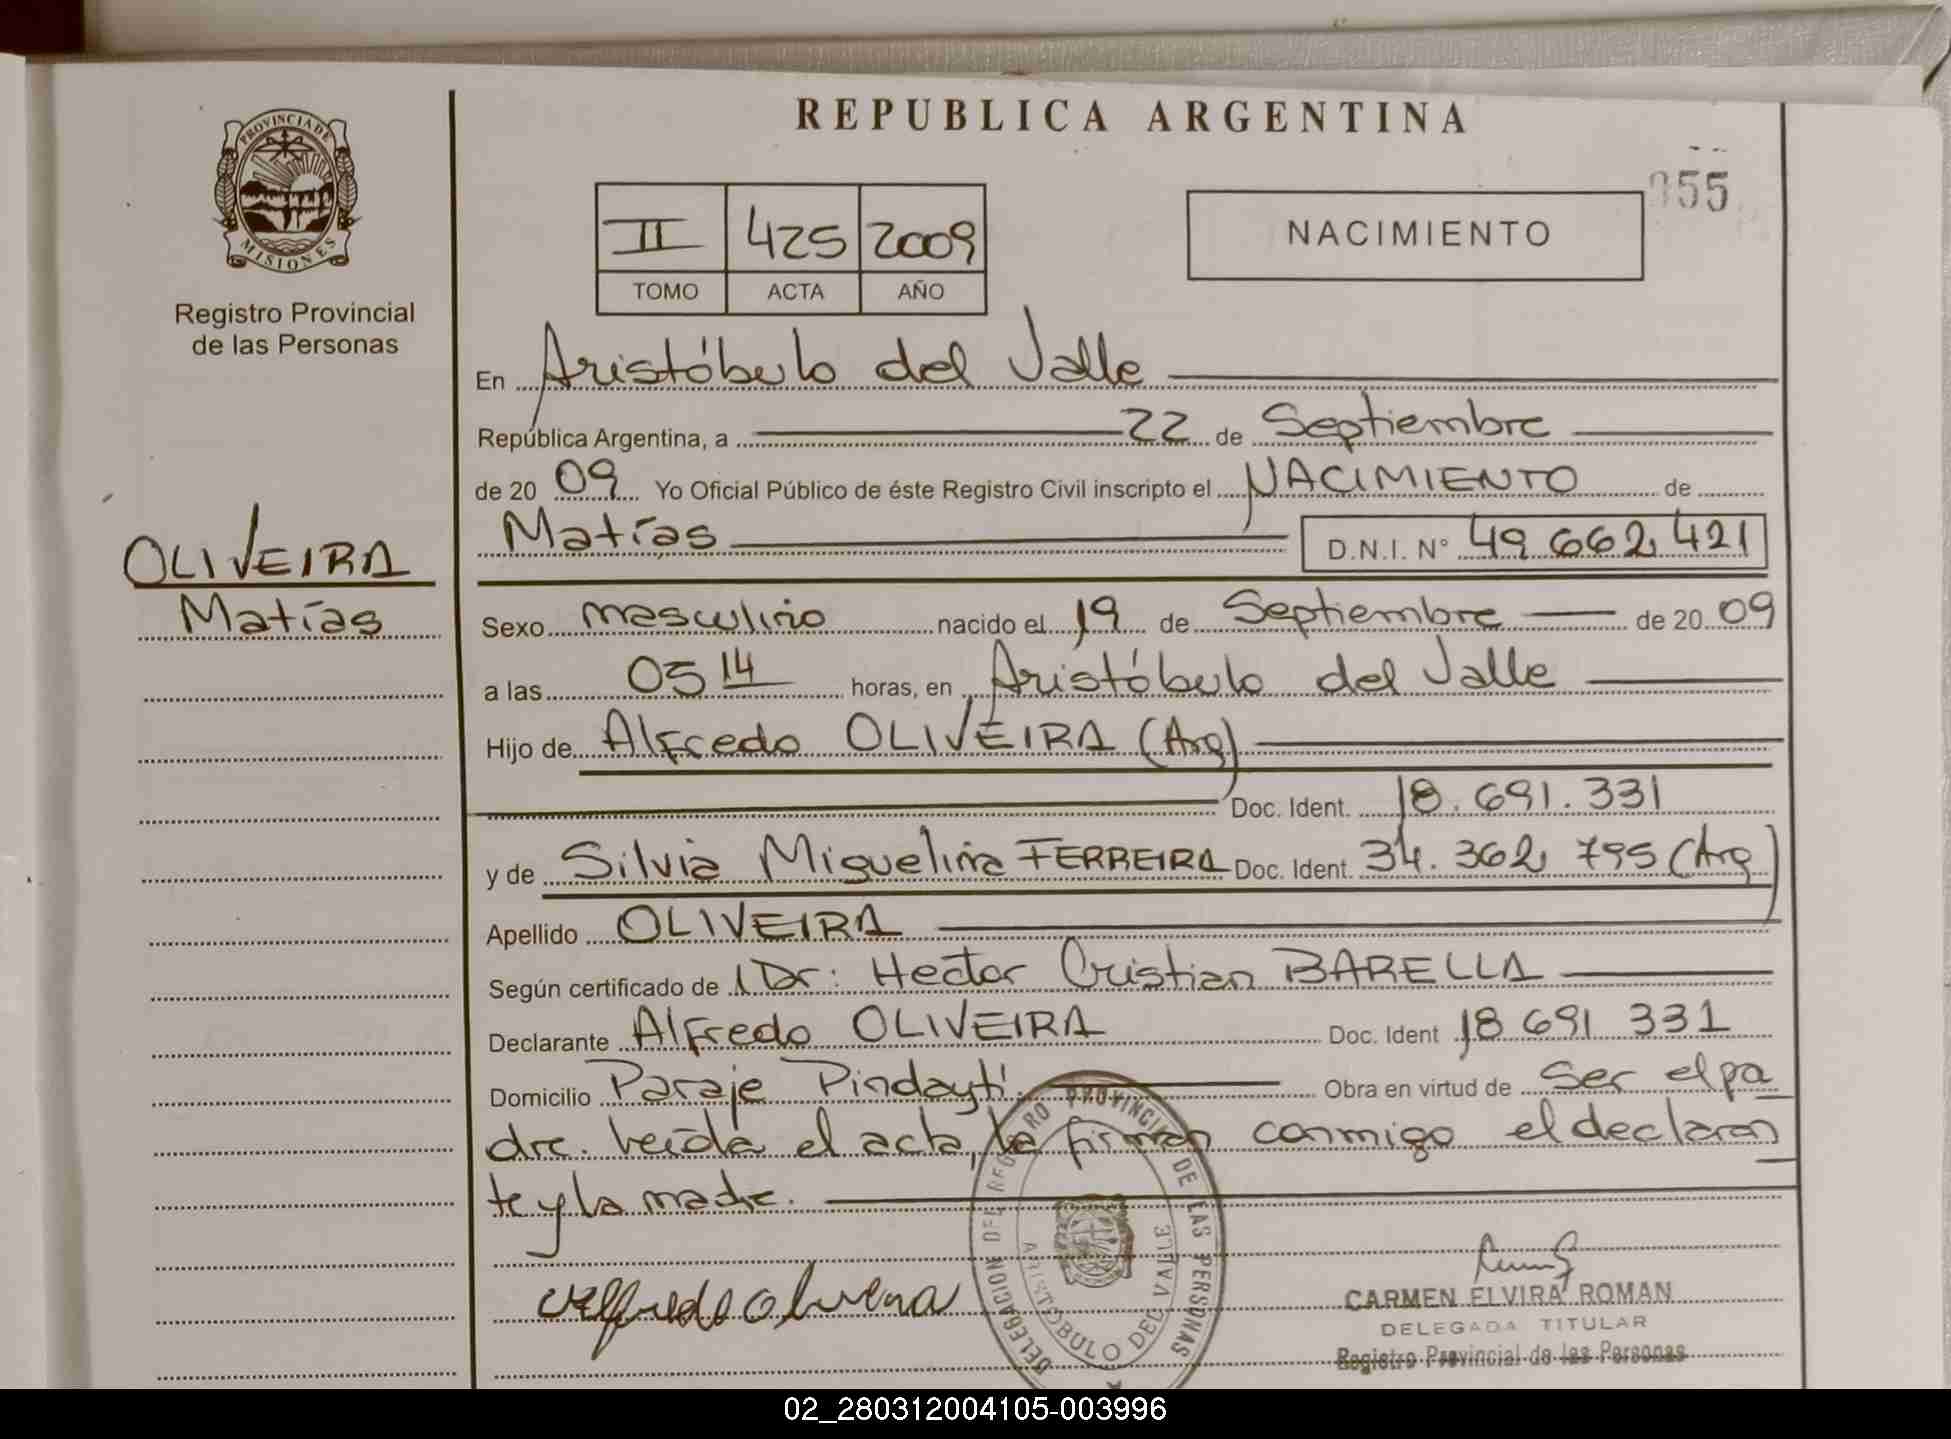 REPUBLICA ARGENTINA
PROVINCIA DE MISIONES
Registro Provincial
de las Personas
355
II 425 2009
TOMO ACTA AÑO
NACIMIENTO
En Aristóbulo del Valle
República Argentina, a 22 de Septiembre
de 20 09 Yo Oficial Público de éste Registro Civil inscripto el NACIMIENTO de
Matías D.N.I. N° 49.662.421
OLIVEIRA
Matías
Sexo masculino nacido el 19 de Septiembre de 20 09
a las 05 14 horas, en Aristóbulo del Valle
Hijo de Alfredo OLIVEIRA (Arg)
Doc. Ident. 18.691.331
y de Silvia Miguelina FERREIRA Doc. Ident. 34.362.795 (Arg)
Apellido OLIVEIRA
Según certificado de Dr: Hector Cristian BARELLA
Declarante Alfredo OLIVEIRA Doc. Ident 18 691 331
Domicilio Paraje Pindayti. Obra en virtud de Ser el pa
dre. Leída el acta, la firman conmigo el declaran
te y la madre.
DELEGACION DEL REGISTRO PROVINCIAL DE LAS PERSONAS
ARISTOBULO DEL VALLE
Alfredo Oliveira
CARMEN ELVIRA ROMAN
DELEGADA TITULAR
Registro Provincial de las Personas
02_280312004105-003996